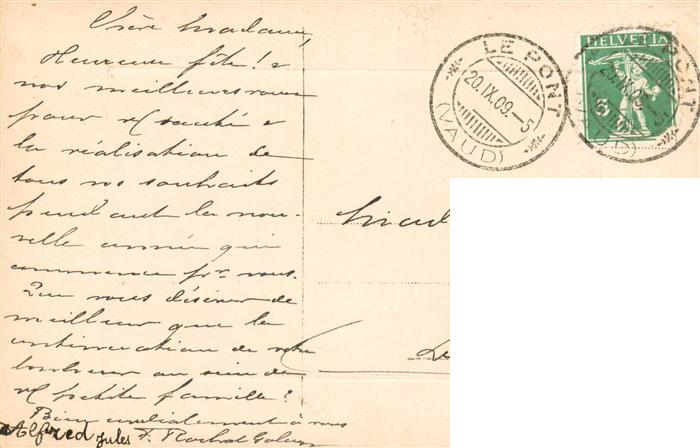 Chère Madame,
Heureuse fête! &
nos meilleurs vœux
pour v/ santé &
la réalisation de
tous vos souhaits
pendant la nou-
velle année qui
commence pr vous.
Que vous désirer de
meilleur que la
continuation de votre
bonheur au sein de
v/ petite famille?
Bien cordialement à vous
Alfred Jules F. Rochat
Mad
LE PONT
20.IX.09.-5
(VAUD)
HELVETIA
5
LE PONT
20.IX.09.-5
(VAUD)